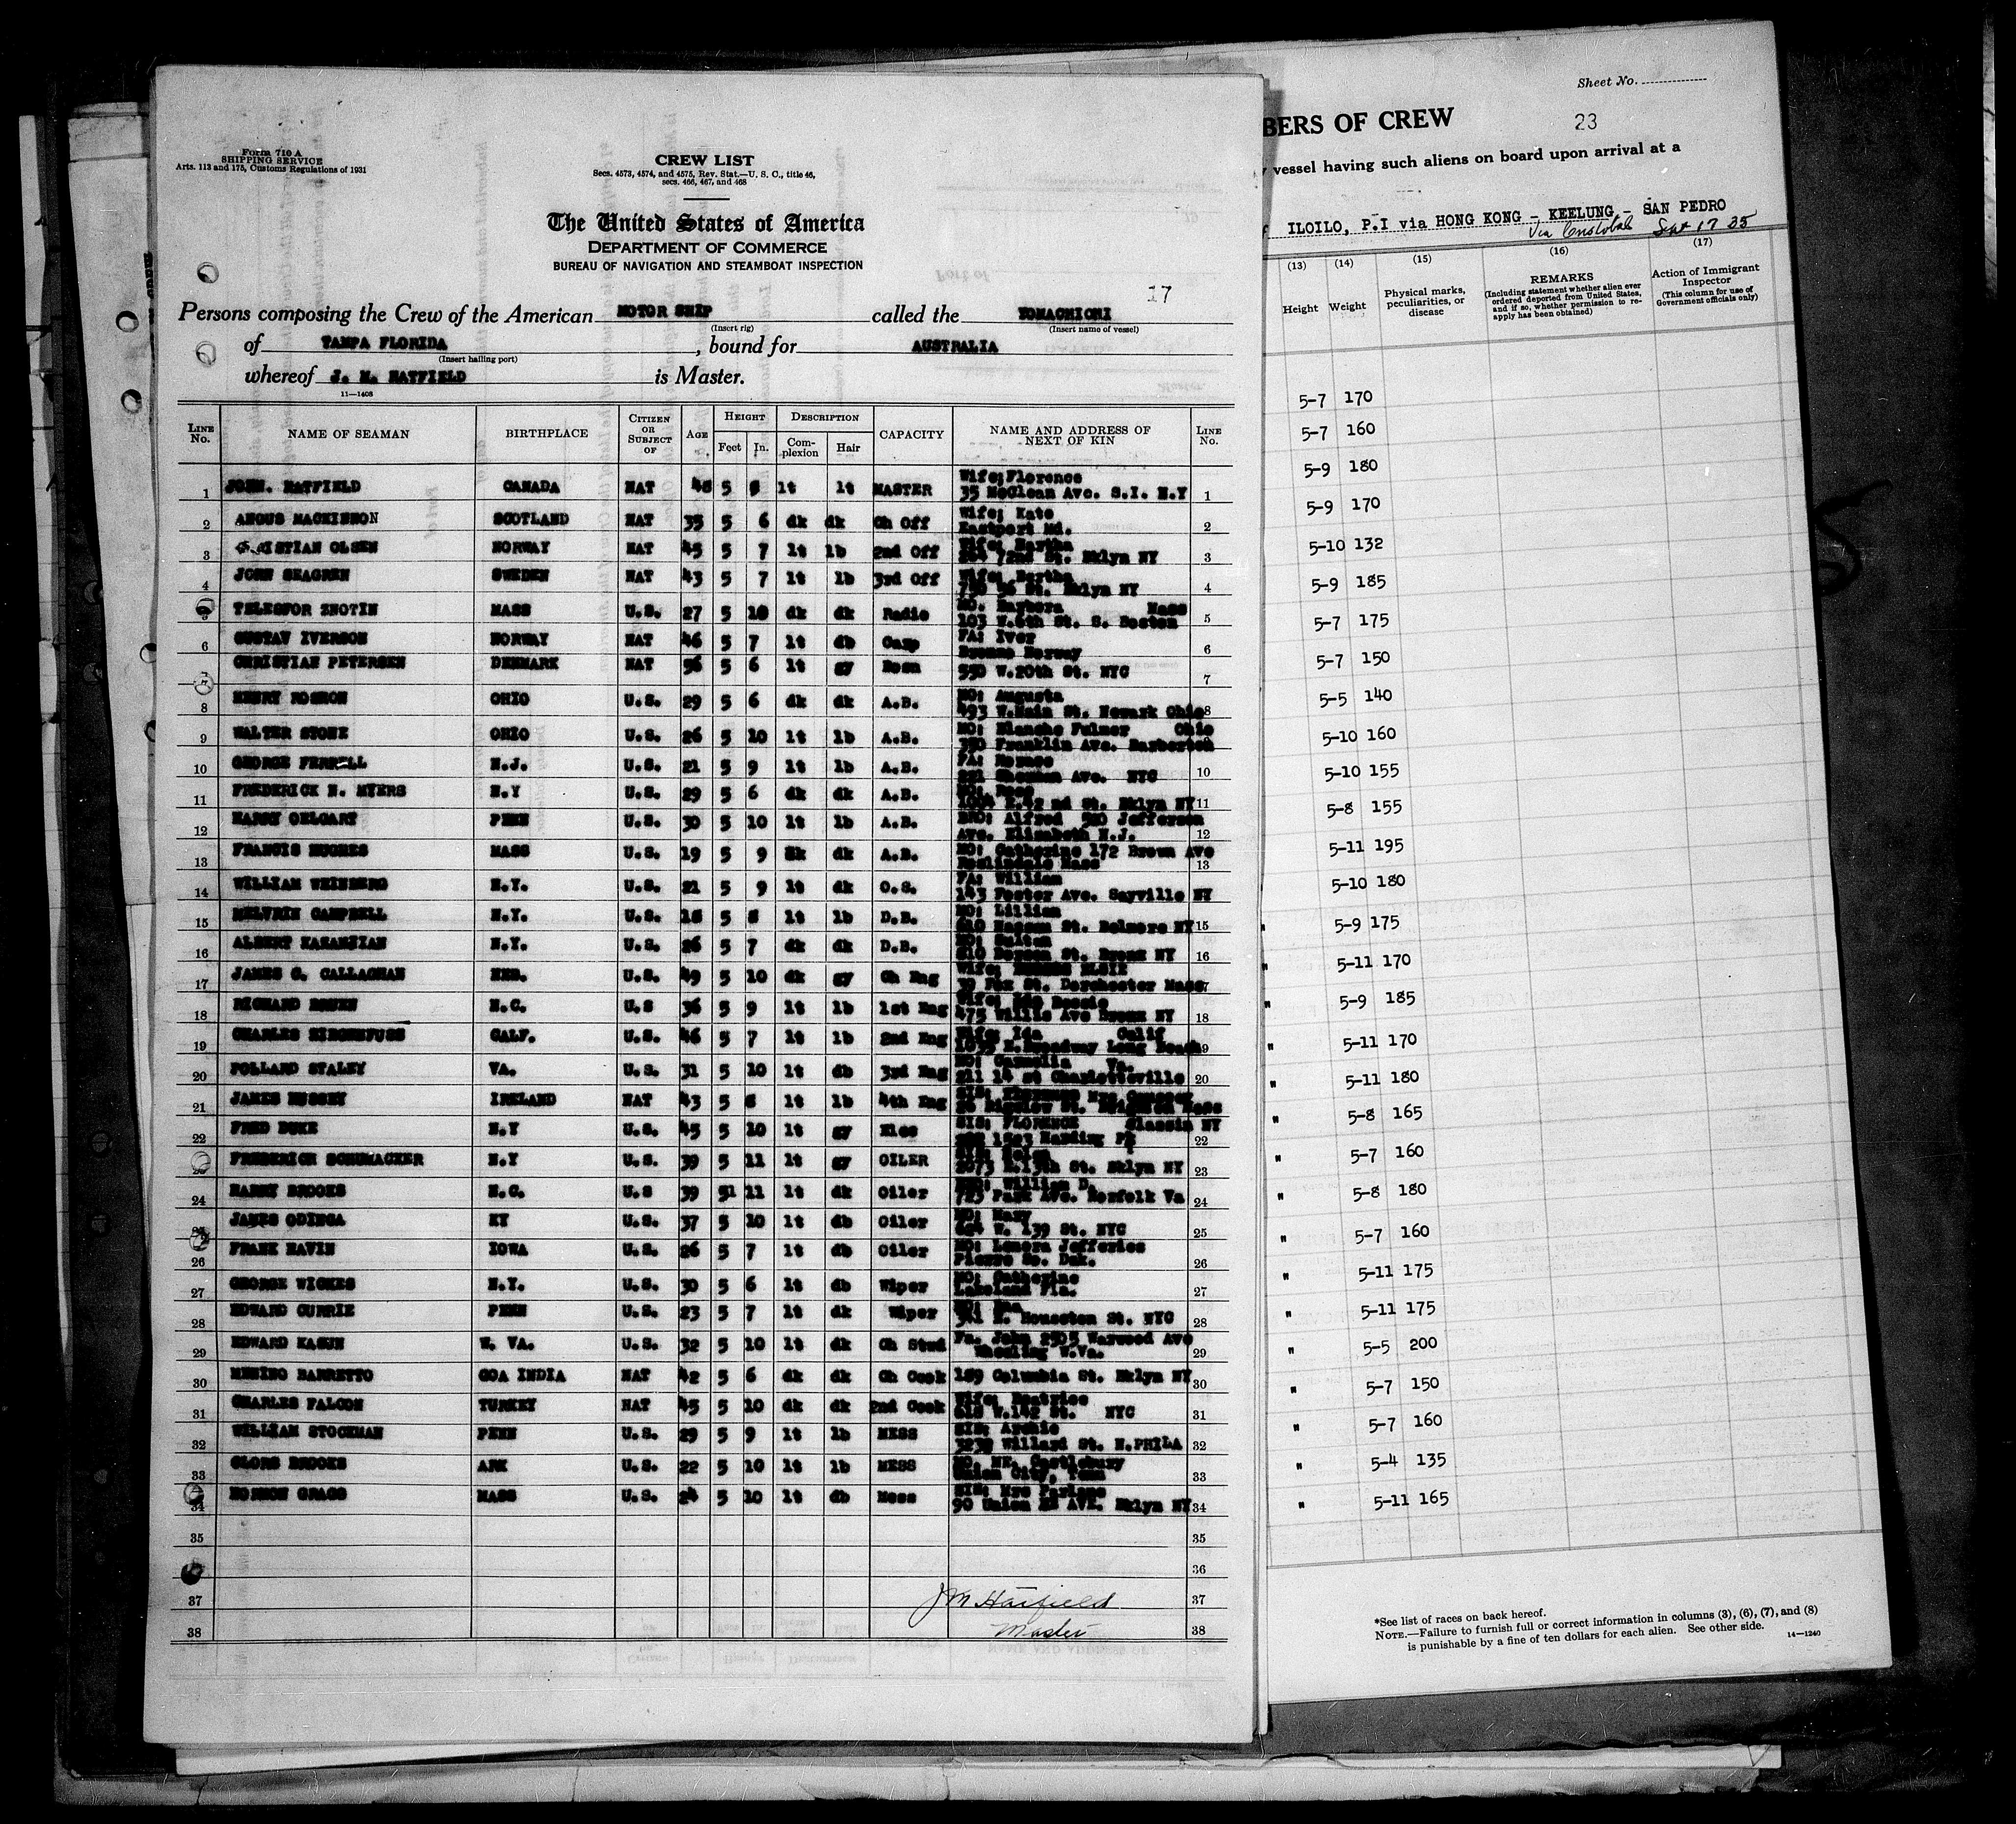 Form 710 A
SHIPPING SERVICE
Arts. 113 and 175, Customs Regulations of 1931
CREW LIST
Secs. 4573, 4574, and 4575, Rev. Stat.—U. S. C., title 46,
secs. 466, 467, and 468
The United States of America
DEPARTMENT OF COMMERCE
BUREAU OF NAVIGATION AND STEAMBOAT INSPECTION
17
Persons composing the Crew of the American MOTOR SHIP called the
(Insert rig) (Insert name of vessel)
of TAMPA FLORIDA, bound for AUSTRALIA
(Insert hailing port)
whereof J. M. HATFIELD is Master.
11—1408
LINE No. NAME OF SEAMAN BIRTHPLACE CITIZEN OR SUBJECT OF AGE HEIGHT Feet In. DESCRIPTION Complexion Hair CAPACITY NAME AND ADDRESS OF NEXT OF KIN LINE No.
1 JOHN. HATFIELD CANADA NAT 5 lt lt MASTER Wife; Florence 35 McClean Ave. S.I. N.Y 1
2 ANGUS MACKINNON SCOTLAND NAT 35 5 6 dk dk Ch Off Wife; Kate Eastport Md. 2
3 OLSEN NORWAY NAT 45 5 7 lt lb 2nd Off Wife; Bertha 72nd St. Bklyn NY 3
4 JOHN SEAGREN SWEDEN NAT 43 5 7 lt lb 3rd Off Wife; Bertha 56 St. Bklyn NY 4
5 TELESFOR ZNOTIN MASS U.S. 27 5 10 dk dk Radio MO. Barbera Mass 103 W.6th St. S. Boston 5
6 GUSTAV IVERSON NORWAY NAT 46 5 7 lt db Carp FA: Iver Norway 6
7 CHRISTIAN PETERSEN DENMARK NAT 56 5 6 lt gy Bosn 550 W.20th St. NYC 7
8 HENRY OHIO U.S. 29 5 6 dk dk A.B. MO: Augusta 493 W.Main St. Newark Ohio 8
9 WALTER STONE OHIO U.S. 26 5 10 lt lb A.B. MO: Blanche Fulmer Ohio Franklin Ave. Barberton
10 GEORGE FERRELL N.J. U.S. 21 5 9 lt lb A.B. FA: Horace Ave. NYC 10
11 FREDERICK H. MYERS N.Y U.S. 29 5 6 dk dk A.B. MO: Rose E.42 nd St. Bklyn NY 11
12 HARRY GELGART PENN U.S. 30 5 10 lt lb A.B. BRO: Alfred 520 Jefferson Ave. Elizabeth N.J. 12
13 FRANCIS HUGHES MASS U.S. 19 5 9 dk A.B. MO: Catherine 172 Brown Ave Roslindale Mass 13
14 WILLIAM WEINBERG N.Y. U.S. 21 5 9 lt dk O.S. FA: William 143 Foster Ave. Sayville NY
15 MELVRIN CAMPBELL N.Y. U.S. 18 5 lt lb D.B. MO: Lillian St. Belmore NY 15
16 ALBERT KAZANJIAN N.Y. U.S. 26 5 7 dk dk D.B. MO: St. Bronx NY 16
17 JAMES G. CALLAGHAN U.S. 49 5 10 dk gy Ch Eng Wife; ELSIE 39 Fox St. Dorchester Mass
18 RICHARD N.C. U.S 36 5 9 lt lb 1st Eng Wife; Bessie 475 Willis Ave Bronx NY 18
19 CHARLES HIRCHEFUSS CALF. U.S. 46 5 7 lt lb 2nd Eng Wife; Ida Calif E.Broadway Long Beach
20 POLLARD STALEY VA. U.S. 31 5 10 lt db 3rd Eng MO: Va. 211 14 st Charlottesville 20
21 JAMES HUSSEY IRELAND NAT 43 5 lt lb 4th Eng SIS: Mrs St. Brighton Mass
22 FRED DUKE N.Y U.S. 45 5 10 lt gy Elec SIS: FLORENCE NY Harding 22
FREDERICH SCHUMACKER N.Y U.S. 39 5 11 lt gy OILER Helen 2073 E.15th St. Bklyn NY 23
24 HARRY BROOKS N.C. U.S 39 51 11 lt dk Oiler William D. 723 Park Ave. Norfolk Va 24
JAMES ODINGA KY U.S. 37 5 10 lt db Oiler MO: Mary W. 139 St. NYC 25
26 FRANK HAVIN IOWA U.S. 26 5 7 lt db Oiler MO: Lenora Jefferies Pierre So. Dak. 26
27 GEORGE WICKES N.Y. U.S. 30 5 6 lt db Wiper MO: Catherine Lakeland Fla. 27
28 EDWARD CURRIE PENN U.S. 23 5 7 lt dk Wiper MO: E. Houseton St. NYC 28
29 EDWARD KASUN W. VA. U.S. 32 5 10 lt dk Ch Stud Fa. John 2505 Warwood Ave Wheeling W.Va. 29
30 MENINO BARRETTO GOA INDIA NAT 42 5 6 dk dk Ch Cook 189 Columbia St. Bklyn NY 30
31 CHARLES FALCON TURKEY NAT 45 5 10 dk dk 2nd Cook Wife; Beatrice 618 W.142 St. NYC 31
32 WILLIAM STOCKMAN PENN U.S. 29 5 9 lt lb MESS SIS: Archie 3232 Willard St. N.PHILA 32
33 BROOKS ARK U.S. 22 5 10 lt lb MESS MO. Castlebury Union City, Tenn 33
34 GRAGG MASS U.S. 24 5 10 lt db Mess SIS: Mrs 90 Union AVE. Bklyn NY 34
35 35
36
37 J M Hatfield 37
38 Master 38
Sheet No.
BERS OF CREW
23
vessel having such aliens on board upon arrival at a
ILOILO, P.I via HONG KONG - KEELUNG - SAN PEDRO
Via Cristobal Sept 17 35
(13) (14) (15) (16) (17)
Height Weight Physical marks, peculiarities, or disease REMARKS (Including statement whether alien ever ordered deported from United States, and if so, whether permission to reapply has been obtained) Action of Immigrant Inspector (This column for use of Government officials only)
5-7 170
5-7 160
5-9 180
5-9 170
5-10 132
5-9 185
5-7 175
5-7 150
5-5 140
5-10 160
5-10 155
5-8 155
5-11 195
5-10 180
5-9 175
" 5-11 170
" 5-9 185
" 5-11 170
" 5-11 180
" 5-8 165
" 5-7 160
" 5-8 180
" 5-7 160
" 5-11 175
" 5-11 175
" 5-5 200
" 5-7 150
" 5-7 160
" 5-4 135
" 5-11 165
*See list of races on back hereof.
NOTE.—Failure to furnish full or correct information in columns (3), (6), (7), and (8)
is punishable by a fine of ten dollars for each alien. See other side. 14—1240